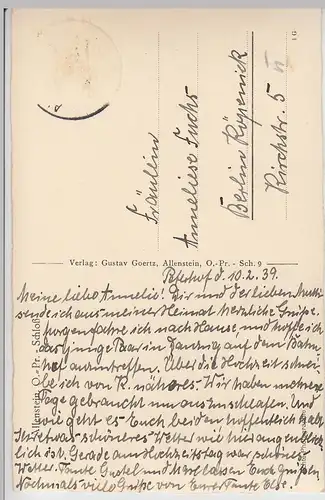 Fräulein
Anneliese Fuchs
Berlin Köpenick
Kirchstr. 5 II
1 G
Verlag: Gustav Goertz, Allenstein, O.-Pr. - Sch. 9
Allenstein, O.-Pr. - Schloß
d. 10.2.39.
Meine liebe Annelie! Dir und der lieben Mutti
sende ich aus meiner Heimat herzliche Grüße.
Morgen fahre ich nach Hause, und hoffe ich
das junge Paar in Danzig auf dem Bahn
hof anzutreffen. Über die Hochzeit schrei-
be ich von K. näheres. Wir haben mehrere
Tage gebraucht um auszuschlafen. Und
wie geht es Euch beiden hoffentlich
Ihr etwas schöneres Wetter wie hier
lich ist. Gerade am Hochzeitstag war schönes
Wetter. Tante Gustel und lassen Euch Grüßen
Nochmals viele Grüße von Eurer Tante Else.